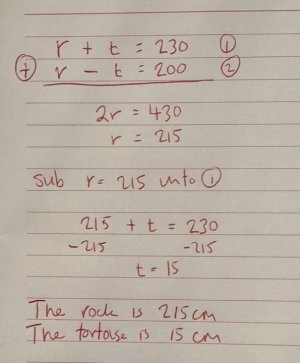 r + t = 230 ①
⊕ r - t = 200 ②
2r = 430
r = 215
Sub r = 215 into ①
215 + t = 230
-215 -215
t = 15
The rock is 215cm
The tortoise is 15 cm